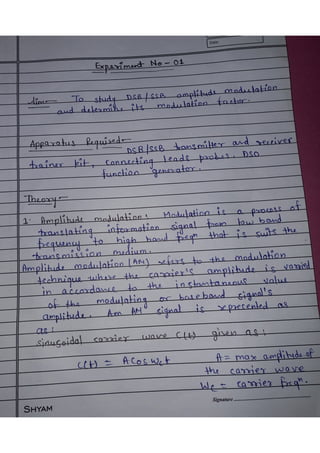 Date
Experiment No - 01
Aim:- To study DSB/SSB amplitude modulation
and determine its modulation factor.
Apparatus Required:-
DSB/SSB transmitter and receiver
trainer kit, connecting leads probes, DSO
function generator.
Theory:-
1. Amplitude modulation: Modulation is a process of
translating information signal from low band
frequency to high band freqn that is suits the
transmission medium.
Amplitude modulation (AM) refers to the modulation
technique where the carrier's amplitude is varied
in accordance to the instantaneous value
of the modulating or base band signal's
amplitude. Am AM signal is represented as
as:
sinusoidal carrier wave C(t) given as:
C(t) = A Cos Wct A = max amplitude of
the carrier wave
Wc = carrier freqn.
Signature
SHYAM